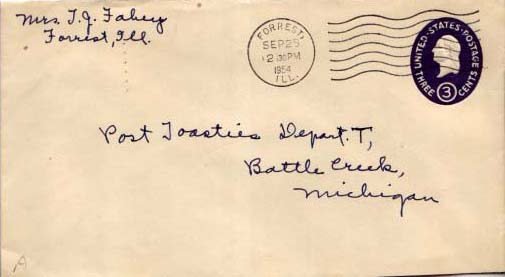 Mrs. T.J. Fahey
Forrest, Ill.
FORREST
SEP 29
2:30PM
1954
ILL.
UNITED·STATES·POSTAGE
3
THREE CENTS
Post Toasties Depart. T,
Battle Creek,
Michigan
A